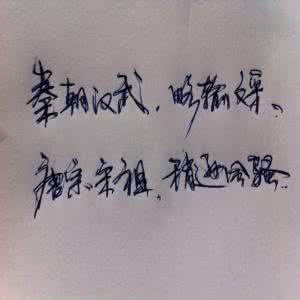 秦朝汉武，略输文采、
唐宗、宋祖，稍逊风骚.